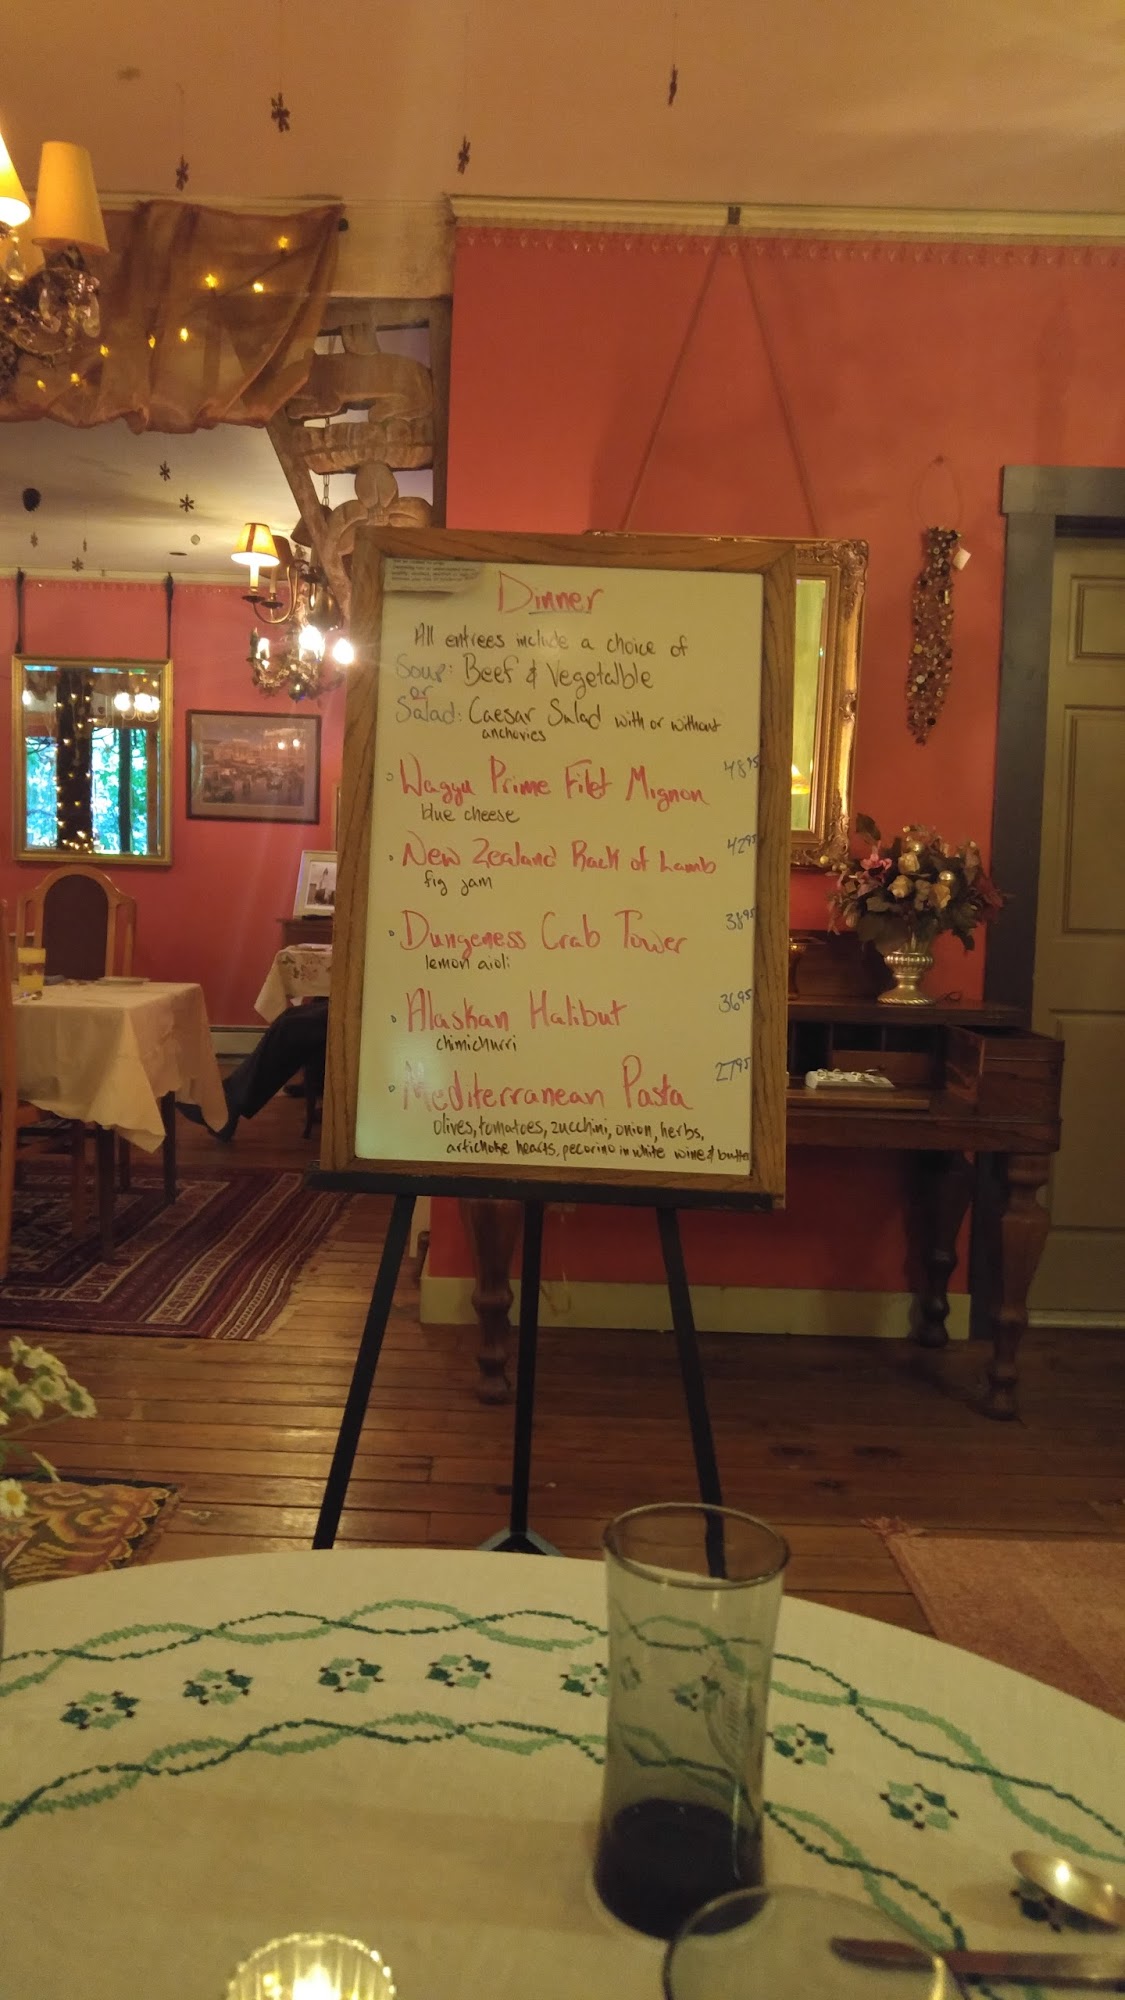 Dinner
All entrees include a choice of
Soup: Beef & Vegetalble
or
Salad: Caesar Salad with or without
anchovies
Wagyu Prime Filet Mignon 48⁹⁵
blue cheese
New Zealand Rack of Lamb 42⁹⁵
fig jam
Dungeness Crab Tower 38⁹⁵
lemon aioli
Alaskan Halibut 36⁹⁵
chimichurri
Mediterranean Pasta 27⁹⁵
olives, tomatoes, zucchini, onion, herbs,
artichoke hearts, pecorino in white wine & butter